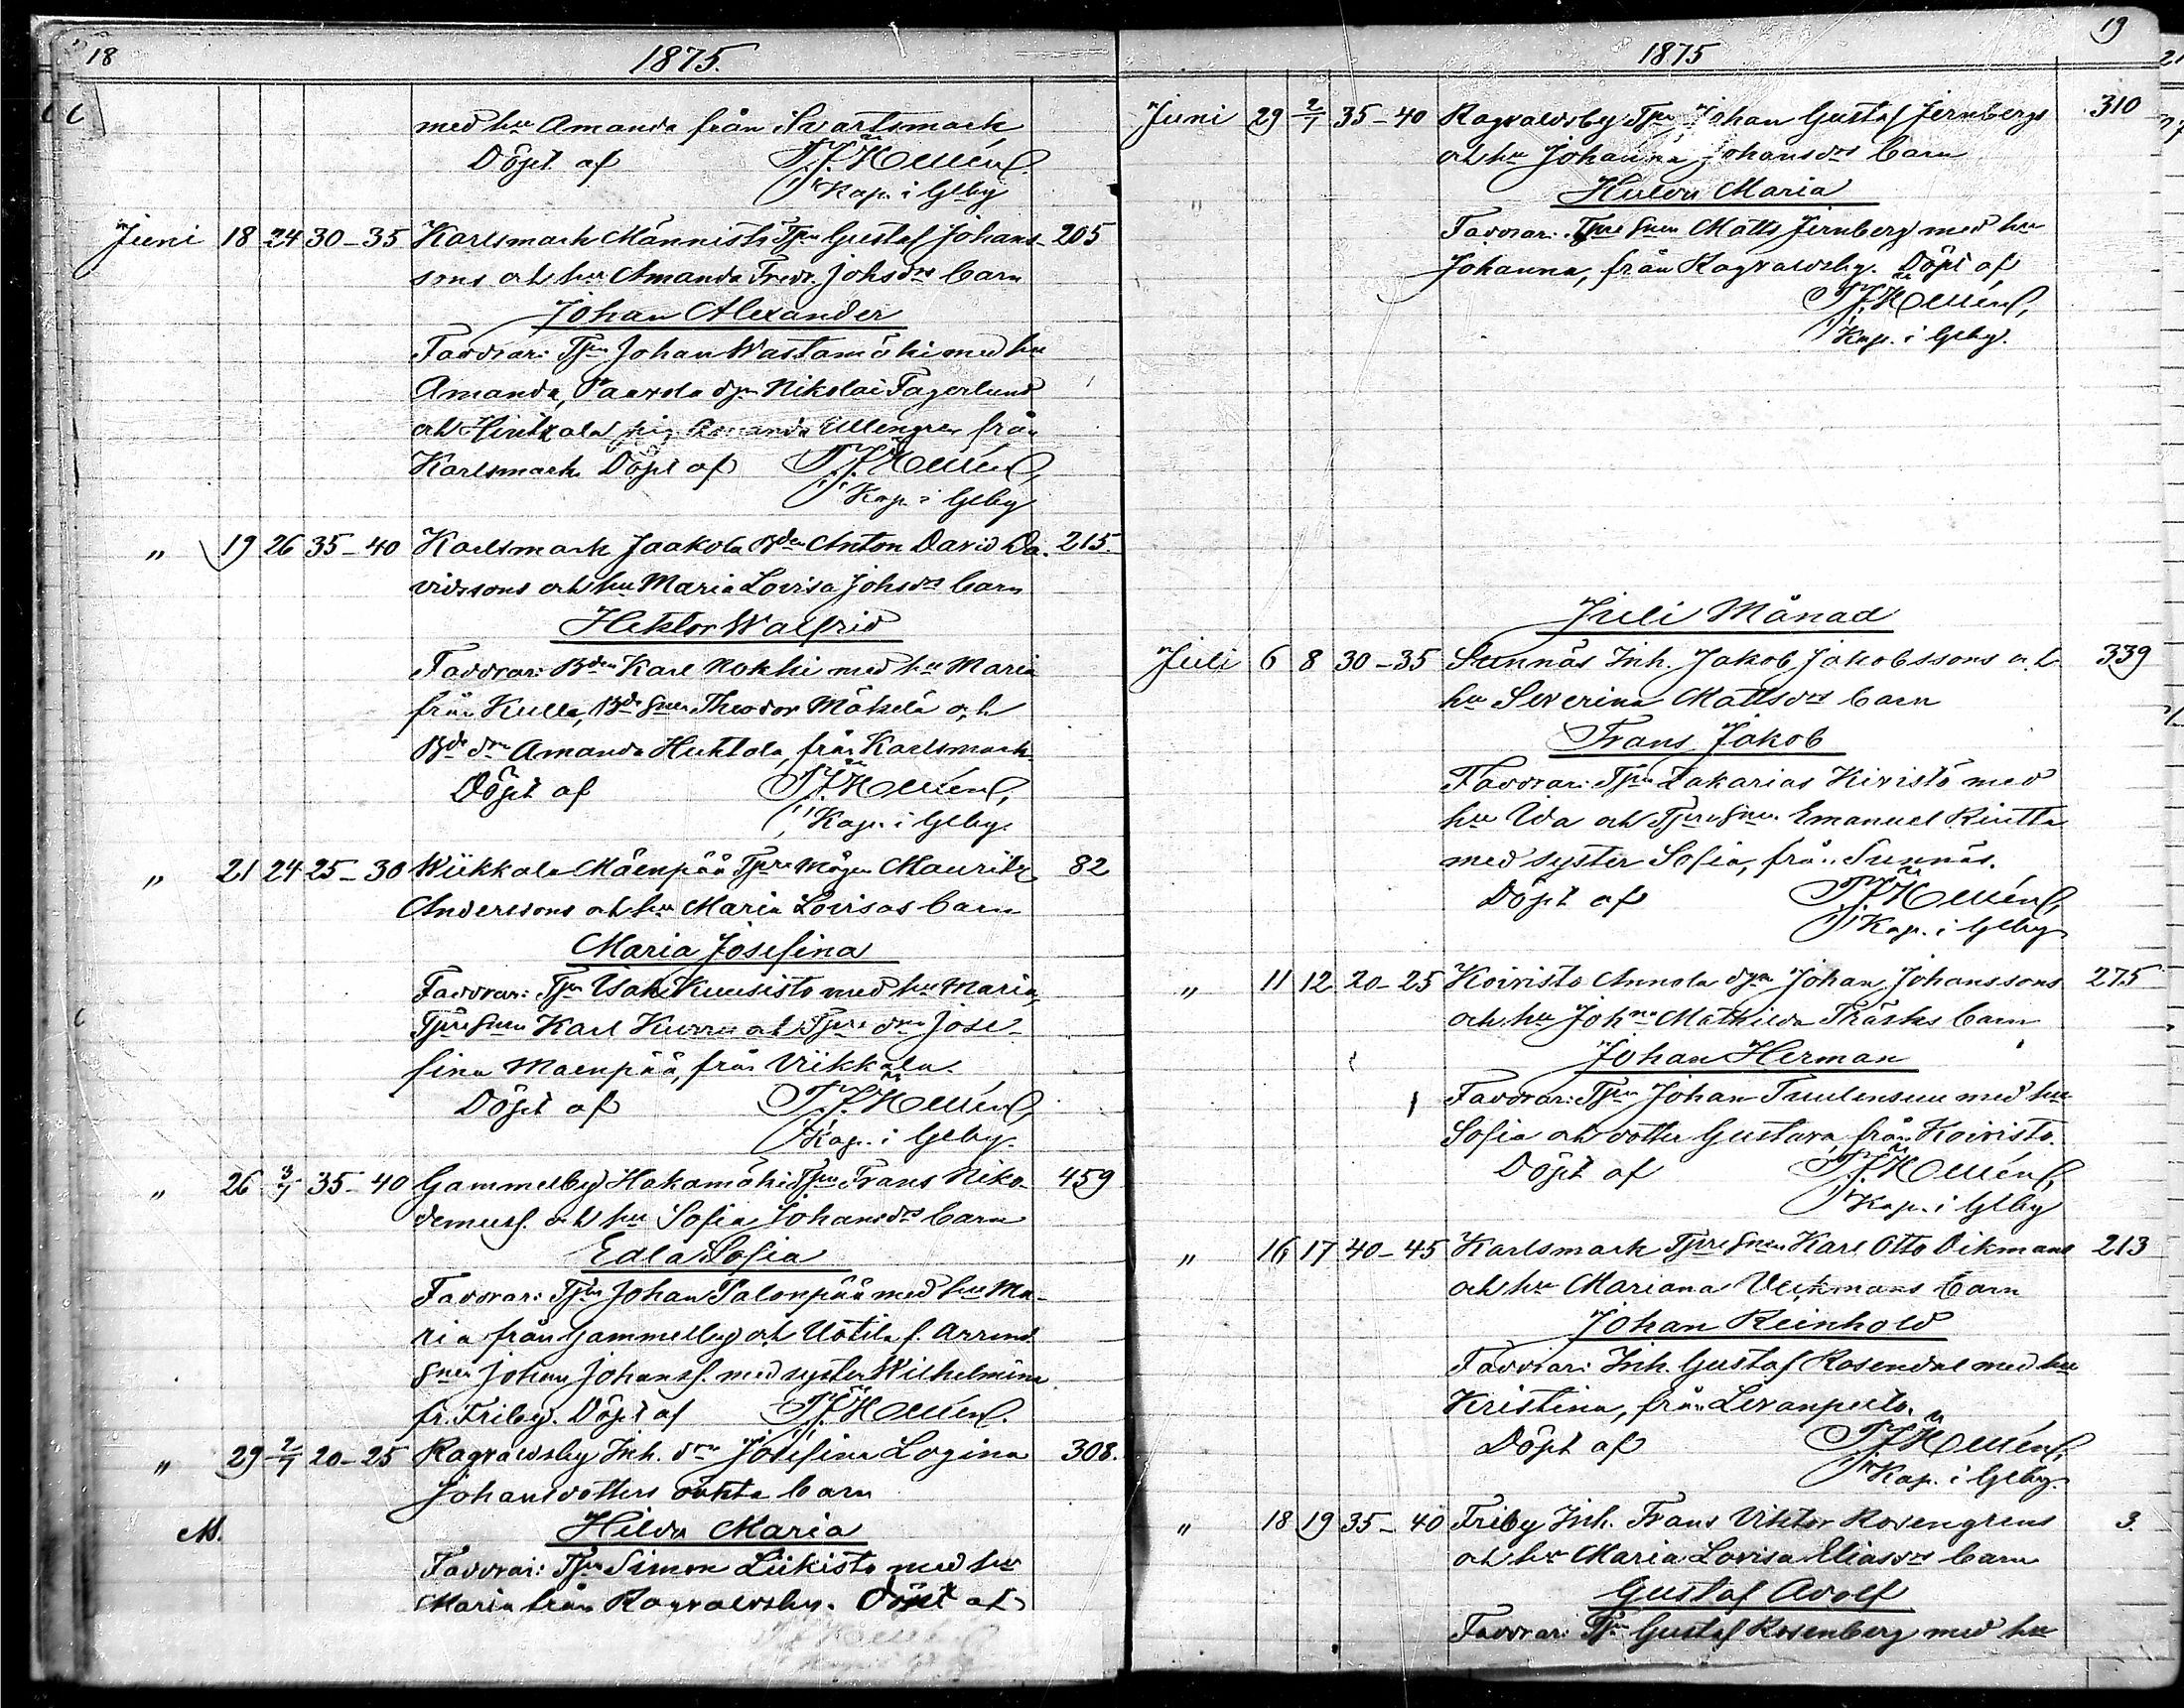 18
1875.
med hu Amanda från Svartsmark
Döpt af T. J. Hollmén.
Kap. i Glby
Juni 18 24 30-35 Karlsmark Männistö Tpn Gustaf Johans- 205
sons och hu Amanda Fredr. Johsdrs barn
Johan Alexander
Faddrar: Tpn Johan Wastamäki med hu
Amanda, Paavola dgn Nikolai Fagerlund
och Hintzala pig. Amanda Ullengren från
Karlsmark Döpt af T. J. Hollmén,
Kap. i Glby
" 19 26 35-40 Karlsmark Jaakola Bden Anton David Da- 215.
vidssons och hu Maria Lovisa Johsdrs barn
Hektor Walfrid
Faddrar: Bden Karl Nokki med hu Maria
från Kulla, Bde Snen Theodor Mäkelä och
Bde drn Amanda Huhtala, från Karlsmark
Döpt af T. J. Hollmén,
Kap. i Glby.
" 21 24 25-30 Wiikkala Mäenpää Tpre mågen Mauritz 82
Anderssons och hu Maria Lovisas barn
Maria Josefina
Faddrar: Tpn Isak Kuusisto med hu Maria,
Tpre Snen Karl Kurru och Tpre drn Jose-
fina Maenpää, från Viikkala.
Döpt af T. J. Hollmén,
Kap. i Glby.
" 26 3/7 35-40 Gammelby Hakamäki Tpn Frans Niko- 459
demuss. och hu Sofia Johansdrs barn
Edla Sofia
Faddrar: Tpn Johan Talonpää med hu Ma-
ria från Gammelby och Uotila f. Arrend.
Snen Johan Johanss. med syster Wilhelmina
fr. Friby. Döpt af T. J. Hollmén.
" 29 2/7 20-25 Ragvaldsby Inh. drn Josefina Logina 308.
Johansdotters oäkta barn
M. Hilda Maria
Faddrar: Tpn Simon Liikisto med hu
Maria från Ragvaldsby. Döpt af
19
1875
Juni 29 2/7 35-40 Ragvaldsby Tpn Johan Gustaf Jernbergs 310
och hu Johanna Johansdrs barn
Hulda Maria
Faddrar: Tpre Snen Matts Jernberg med hu
Johanna, från Ragvaldsby. Döpt af
T. J. Hollmén,
Kap. i Glby.
Juli Månad
Juli 6 8 30-35 Sunnäs Inh. Jakob Jakobssons och 339
hu Severina Mattsdrs barn
Frans Jakob
Faddrar: Tpn Zakarias Kivistö med
hu Ida och Tpre Snen Emanuel Rintta
med syster Sofia, från Sunnäs.
Döpt af T. J. Hollmén,
Kap. i Glby
" 11 12 20-25 Koivisto Annola dgn Johan Johanssons 275
och hu Johna Mathilda Träsks barn
Johan Herman
Faddrar: Tpn Johan Tuulensuu med hu
Sofia och dotter Gustava från Koivisto.
Döpt af T. J. Hollmén,
Kap. i Glby
" 16 17 40-45 Karlsmark Tpre Snen Karl Otto Dikmans 213
och hu Mariana Veckmans barn
Johan Reinhold
Faddrar: Inh. Gustaf Rosendal med hu
Kristina, från Levanpelto.
Döpt af T. J. Hollmén,
Kap. i Glby.
" 18 19 35-40 Friby Inh. Frans Viktor Rosengrens 3.
och hu Maria Lovisa Eliasdrs barn
Gustaf Adolf
Faddrar: Tpn Gustaf Rosenberg med hu